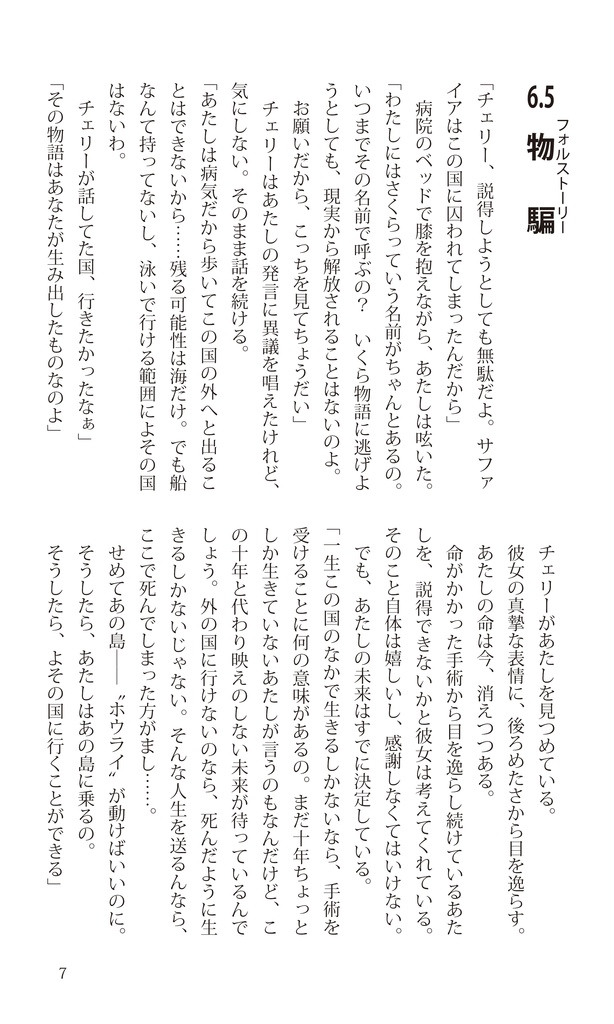 6.5 物騙
フォルストーリー
「チェリー、説得しようとしても無駄だよ。サファ
イアはこの国に囚われてしまったんだから」
病院のベッドで膝を抱えながら、あたしは呟いた。
「わたしにはさくらっていう名前がちゃんとあるの。
いつまでその名前で呼ぶの？　いくら物語に逃げよ
うとしても、現実から解放されることはないのよ。
お願いだから、こっちを見てちょうだい」
チェリーはあたしの発言に異議を唱えたけれど、
気にしない。そのまま話を続ける。
「あたしは病気だから歩いてこの国の外へと出るこ
とはできないから……残る可能性は海だけ。でも船
なんて持ってないし、泳いで行ける範囲によその国
はないわ。
チェリーが話してた国、行きたかったなぁ」
「その物語はあなたが生み出したものなのよ」
チェリーがあたしを見つめている。
彼女の真摯な表情に、後ろめたさから目を逸らす。
あたしの命は今、消えつつある。
命がかかった手術から目を逸らし続けているあた
しを、説得できないかと彼女は考えてくれている。
そのこと自体は嬉しいし、感謝しなくてはいけない。
でも、あたしの未来はすでに決定している。
「一生この国のなかで生きるしかないなら、手術を
受けることに何の意味があるの。まだ十年ちょっと
しか生きていないあたしが言うのもなんだけど、こ
の十年と代わり映えのしない未来が待っているんで
しょう。外の国に行けないのなら、死んだように生
きるしかないじゃない。そんな人生を送るんなら、
ここで死んでしまった方がまし……。
せめてあの島――〝ホウライ〟が動けばいいのに。
そうしたら、あたしはあの島に乗るの。
そうしたら、よその国に行くことができる」
7